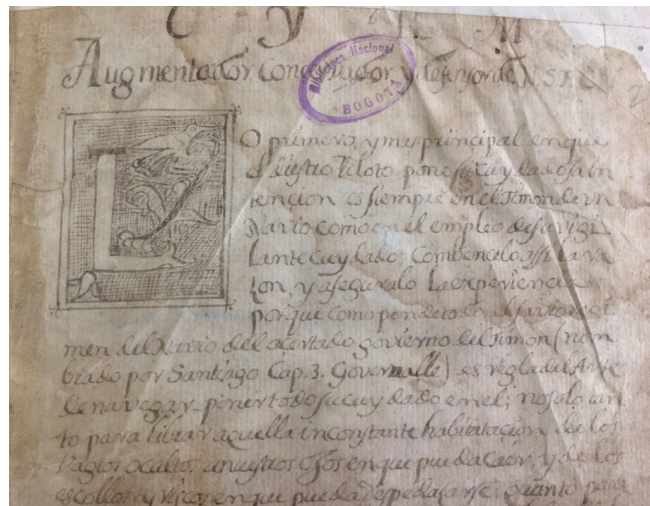 C y R M
Augmentador Conquistador, y defensor de N. S. F.
Biblioteca Nacional
BOGOTA
LO primero, y mas principal en que
el diestro Piloto pone su cuydadosa in
tencion es siempre en el timon de un
Navio como en el empleo de su vigi
lante cuydado; Combencelo assi la ra
zon, y asseguralo la experiencia
porque como pende todo el
men del Navio del acertado govierno del Timon (nom
brado por Santiago Cap. 3. Governalle) es regla del Arte
de navegar poner todo su cuydado en el; no solo
to para librar aquella inconstante habitacion de los
ocultos a nuestros ojos en que pueda caer, y de los
escollos, y en que pueda despedasarse; quanto para